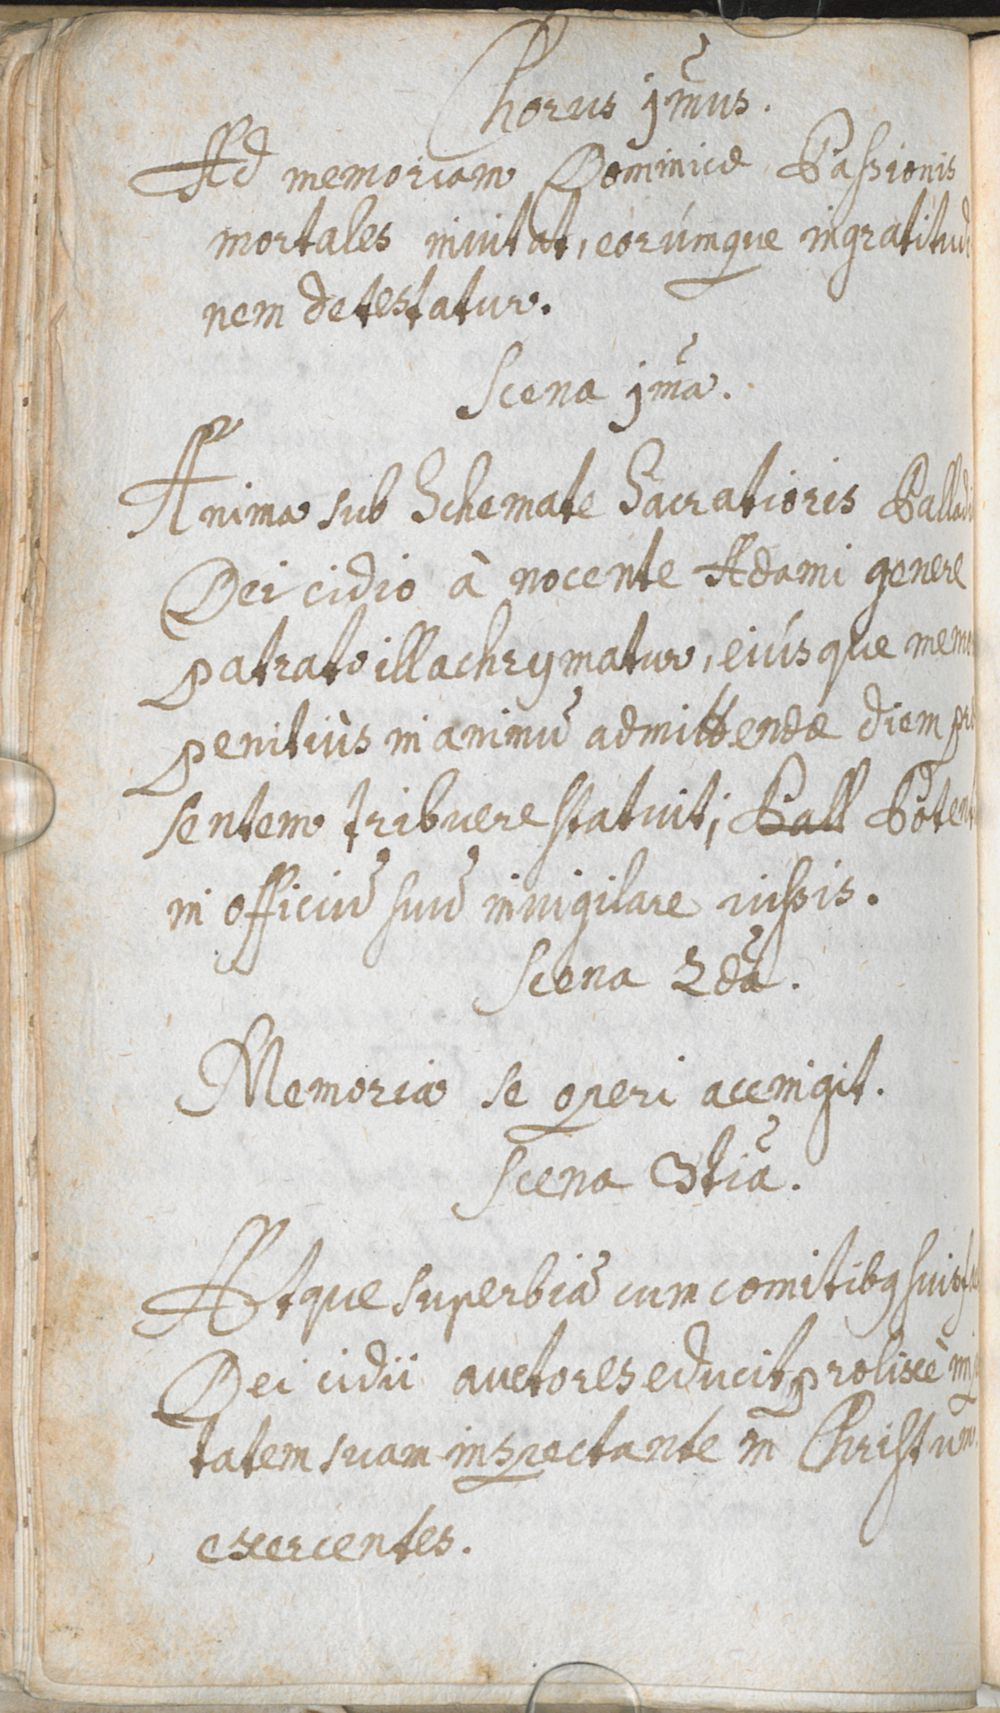 Chorus jm̃us.
Ad memoriam Dominicæ Passionis
mortales inuitat, eorúmque ingratitudi
nem detestatur.
Scena jm̃a.
Anima sub Schemate Sacratioris Palladi
Deicidio à nocente Adami genere
patrato illachrymatur, eiúsque memo
penitiùs in animũ admittendæ diem præ
sentem tribuere statuit; Pall Potent
in officiũ suũ inuigilare iussis.
Scena 2dã.
Memoria se operi accingit.
Scena 3tiã.
Atque superbiã cum comitibq suis
Deicidii auctores educit, prolixè
tatem suam inspectante in Christum
exercentes.